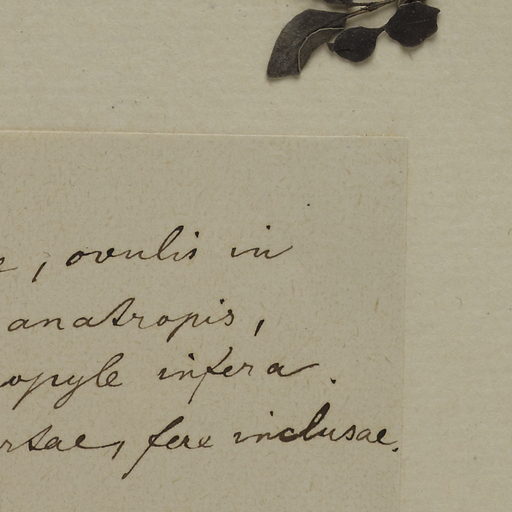 , ovulis in
anatropis,
opyle infera.
rtae, fere inclusae.